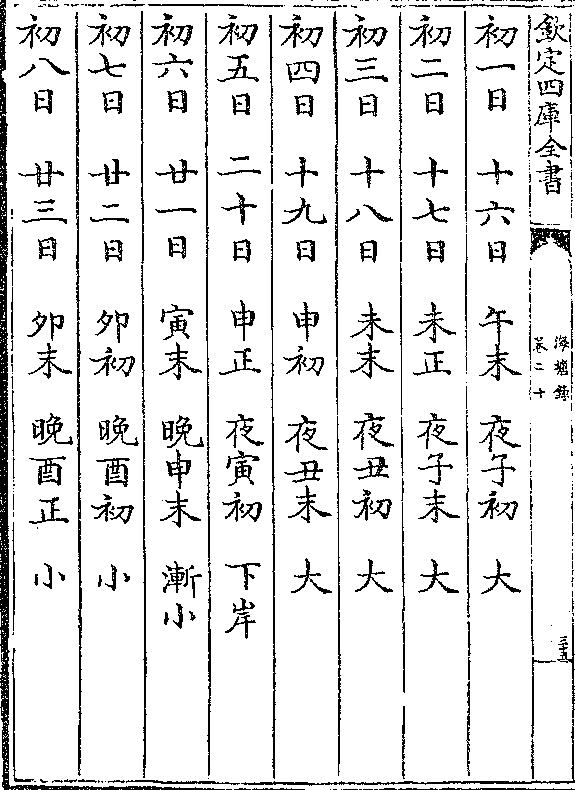 欽定四庫全書
海塘錄
卷二十
三十五
初一日 十六日 午末 夜子初 大
初二日 十七日 未正 夜子末 大
初三日 十八日 未末 夜丑初 大
初四日 十九日 申初 夜丑末 大
初五日 二十日 申正 夜寅初 下岸
初六日 廿一日 寅末 晚申末 漸小
初七日 廿二日 夘初 晚酉初 小
初八日 廿三日 夘末 晚酉正 小